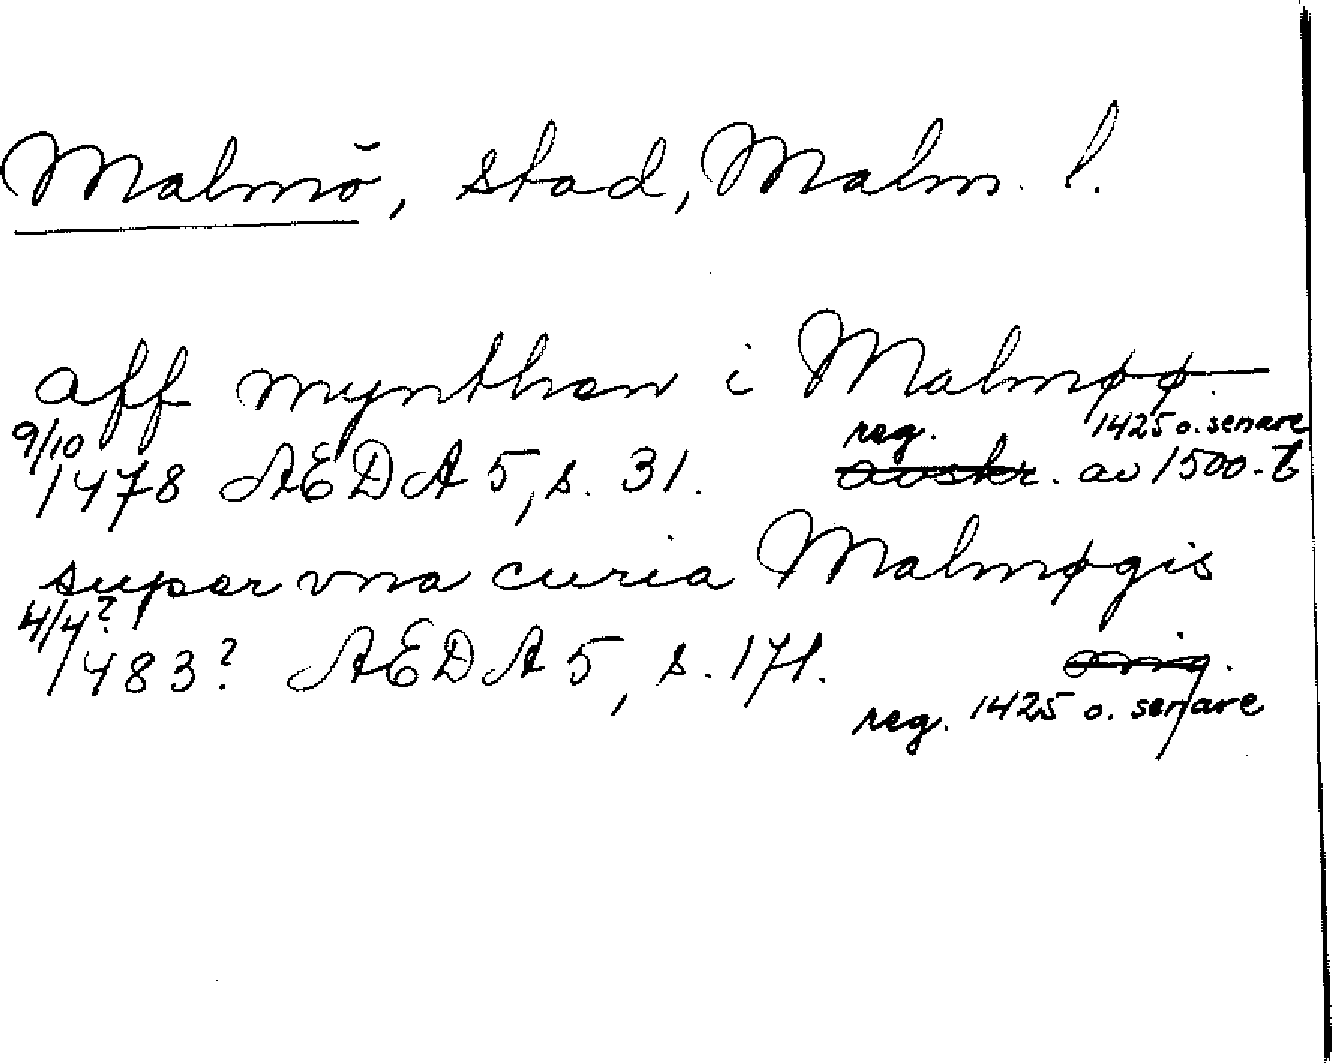 Malmö, stad, Malm. l.
aff mynthen i Malmøø.
reg. 1425 o. senare
9/10 1478 AEDA 5, s. 31. avskr. av 1500-t
super vna curia Malmøgis
4/4? 1483? AEDA 5, s. 171. orig.
reg. 1425 o. senare